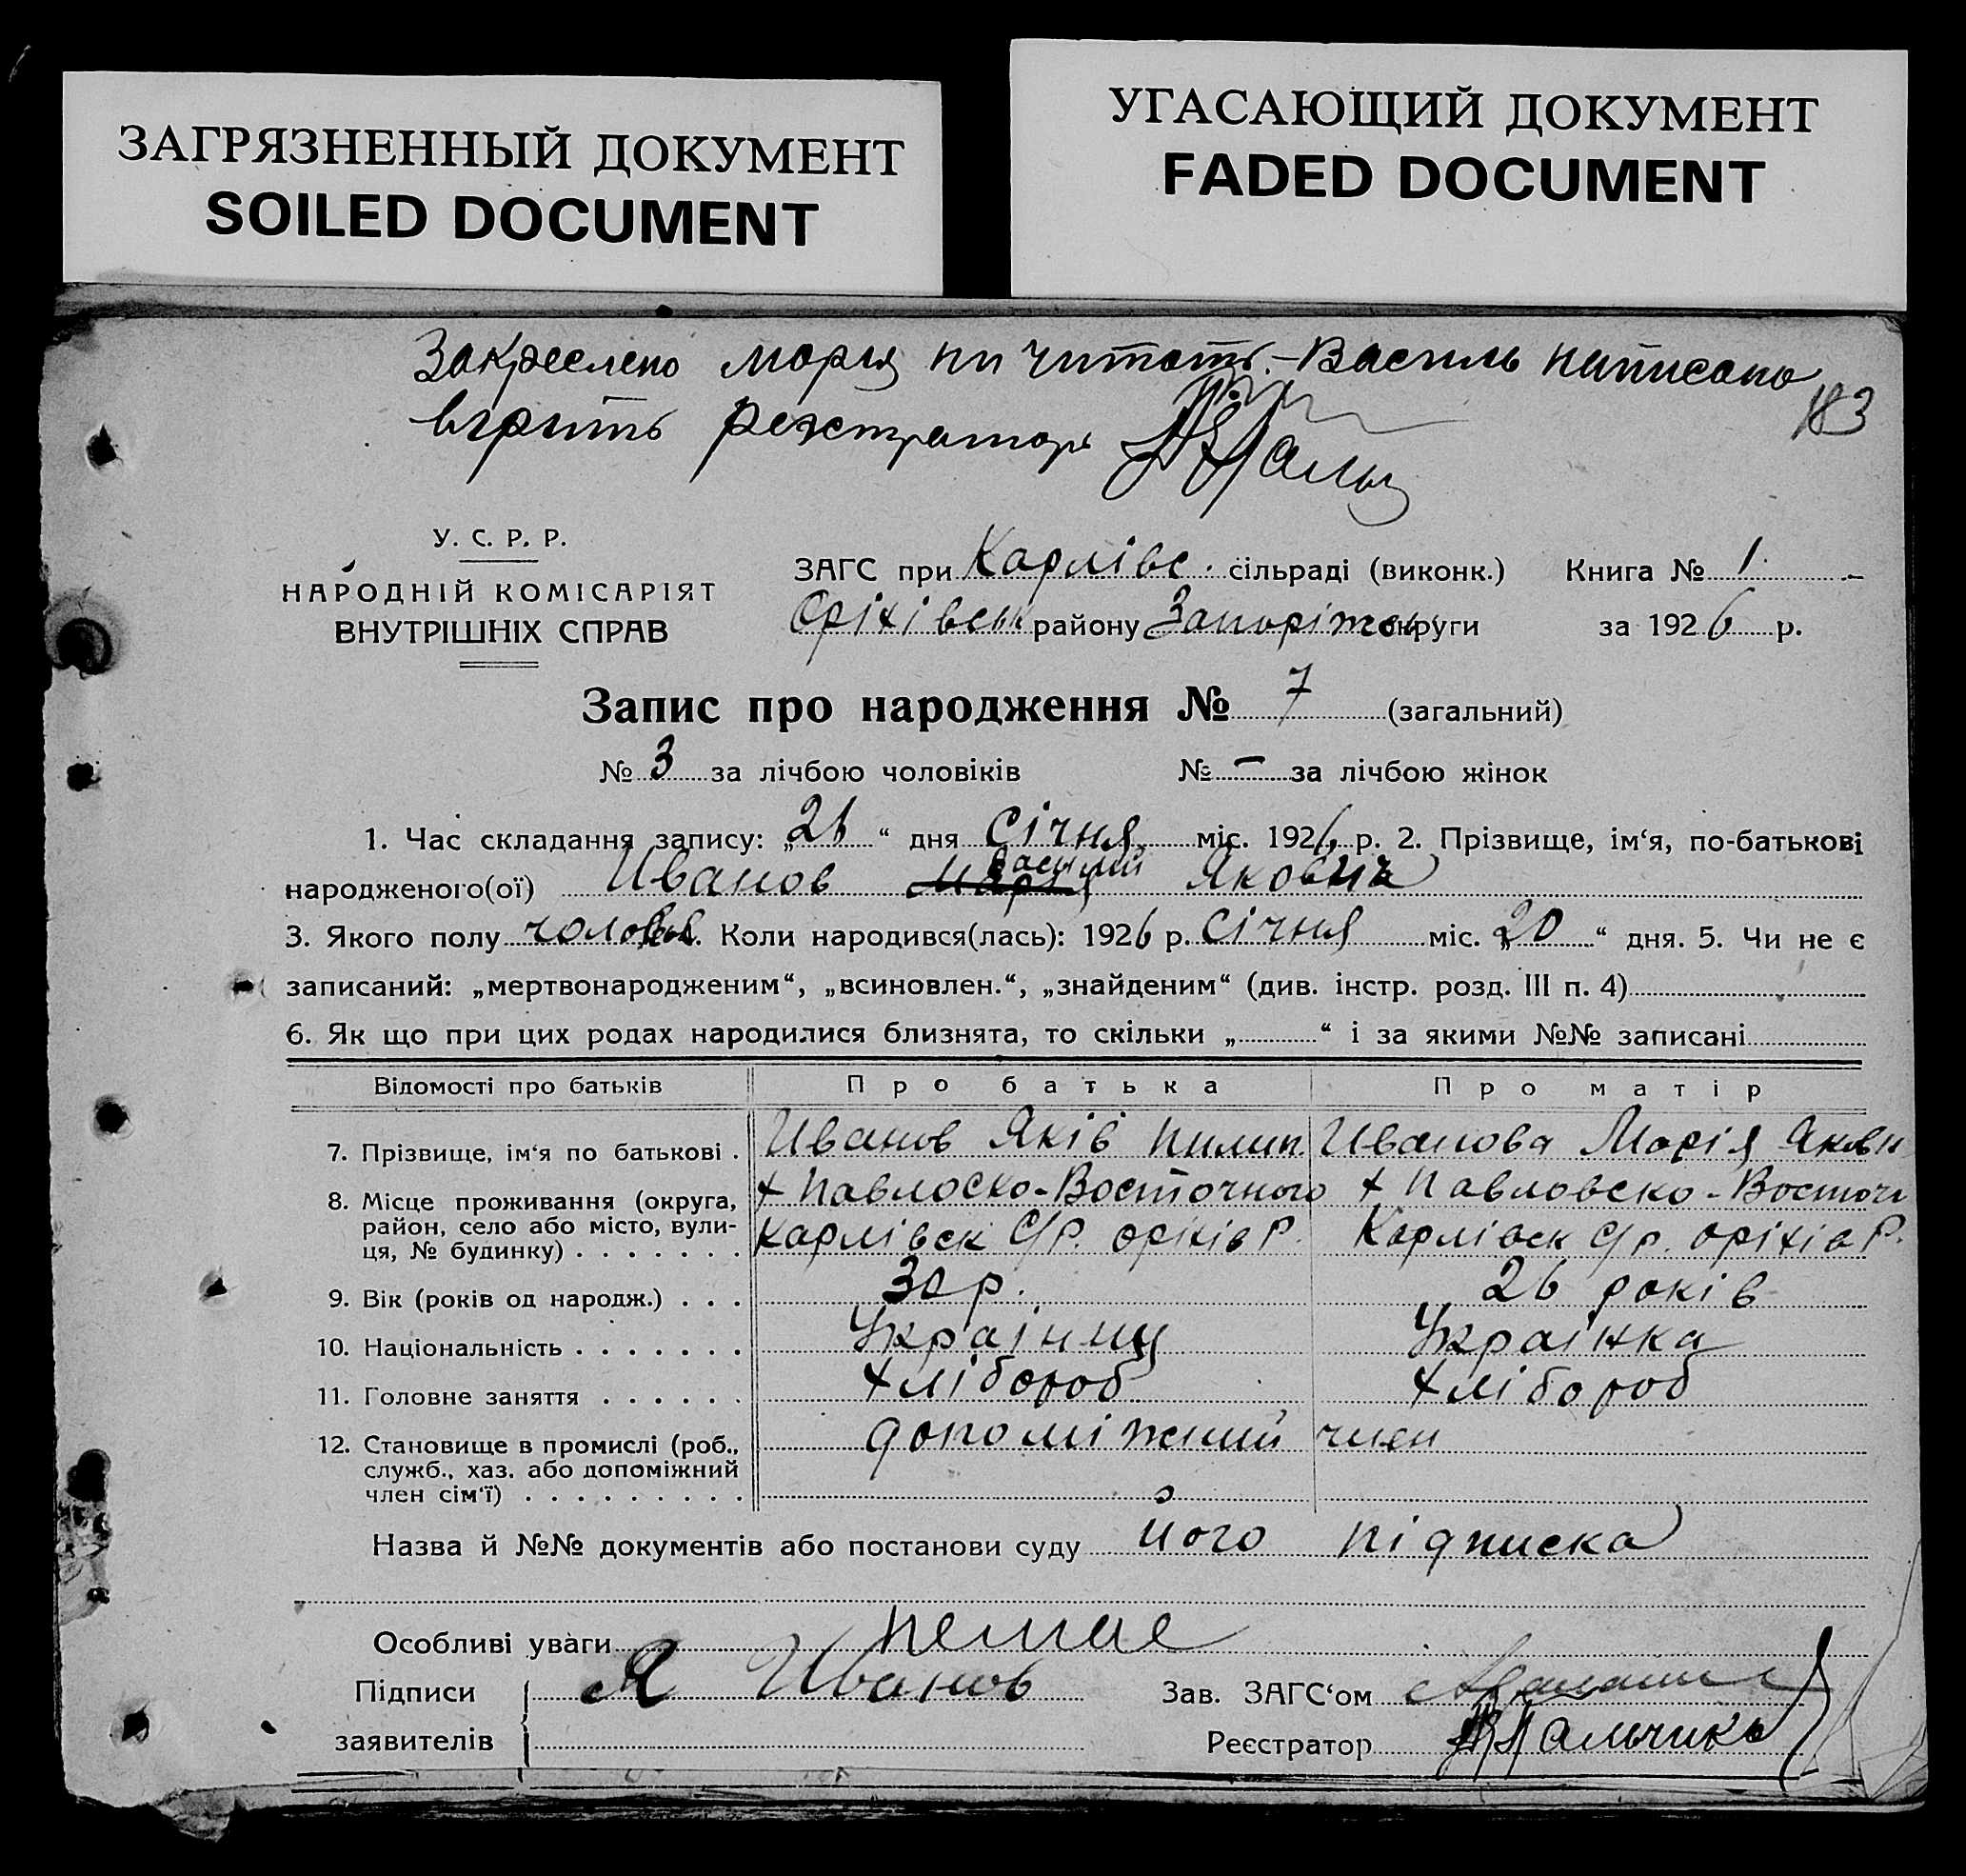 ЗАГРЯЗНЕННЫЙ ДОКУМЕНТ
SOILED DOCUMENT
УГАСАЮЩИЙ ДОКУМЕНТ
FADED DOCUMENT
Закреслено Марія ни читать. – Василь написано
вірить реєстратор
183
У. С. Р. Р.
НАРОДНІЙ КОМІСАРІЯТ
ВНУТРІШНІХ СПРАВ
ЗАГС при Карлівс. сільраді (виконк.) Книга № 1
Оріхівськ району Запоріжськ округи за 1926 р.
Запис про народження № 7 (загальний)
№ 3 за лічбою чоловіків № – за лічбою жінок
1. Час складання запису: „26“ дня Січня міс. 1926 р. 2. Прізвище, ім‘я, по-батькові
Василий
народженого(ої) Иванов Марія Якович
3. Якого полу чолов. Коли народився(лась): 1926 р. Січня міс. „20“ дня. 5. Чи не є
записаний: „мертвонародженим“, „всиновлен.“, „знайденим“ (див. інстр. розд. III п. 4)
6. Як що при цих родах народилися близнята, то скільки „ “ і за якими №№ записані
Відомості про батьків Про батька Про матір
7. Прізвище, ім‘я по батькові . Иванов Яків Пилип. Иванова Марія Яковл
8. Місце проживання (округа, х Павлоско-Восточного х Павловско-Восточн
район, село або місто, вули- Карлівск С/Р. Оріхів Р. Карлівск С/р. Оріхів Р.
ця, № будинку) . . . . . . .
9. Вік (років од народж.) . . . 30 р. 26 років
10. Національність . . . . . . . Українц Українка
11. Головне заняття . . . . . . хлібороб хлібороб
12. Становище в промислі (роб., допоміжний член
служб., хаз. або допоміжний
член сім‘ї) . . . . . . . . .
Назва й №№ документів або постанови суду його підписка
Особливі уваги немає
Підписи Я Иванов Зав. ЗАГС‘ом
заявителів Реєстратор Пальчик